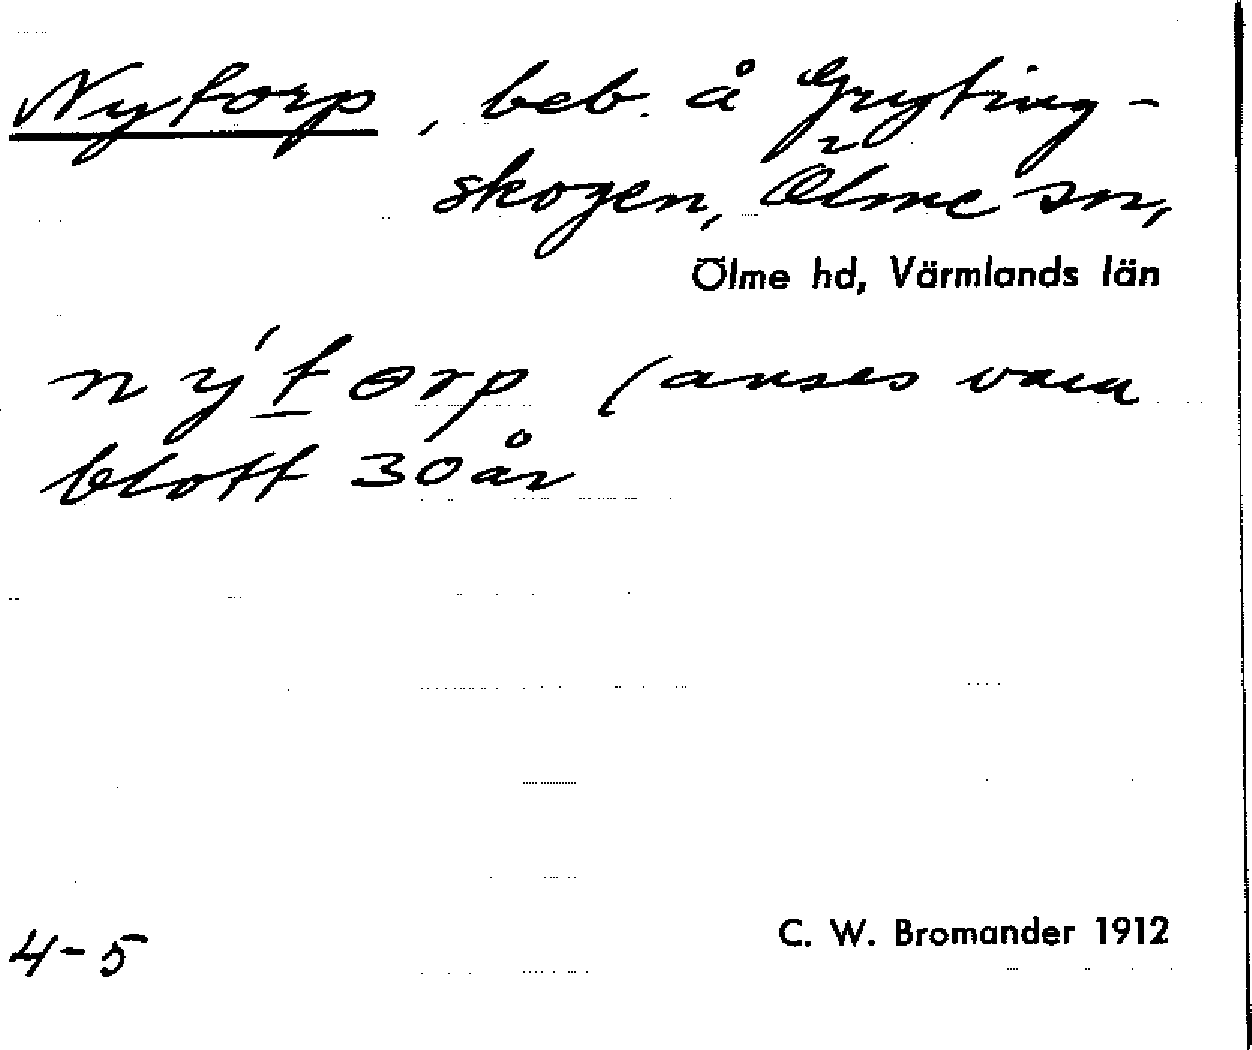 Nytorp, beb. å Gryting-
skogen, Ölme sn,
Ölme hd, Värmlands län
ný t orp (anses vara
blott 30 år
4-5
C. W. Bromander 1912